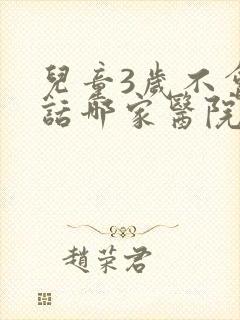 兒童3歲不會
話哪家醫院
趙荣君